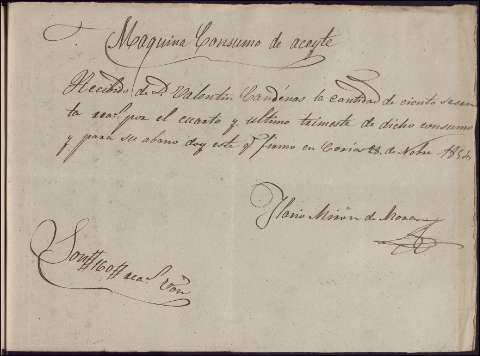 Maquina Consumo de aceyte
Recibido de D. Valentin Cardenas la cantidad de ciento sesen
ta rea.s por el cuarto y ultimo trimestre de dicho consumo
y para su abono doy este q.e firmo en Coria 28 de Nobre 1854
Ilario Miron de Mora
Son 160 rea.s Von